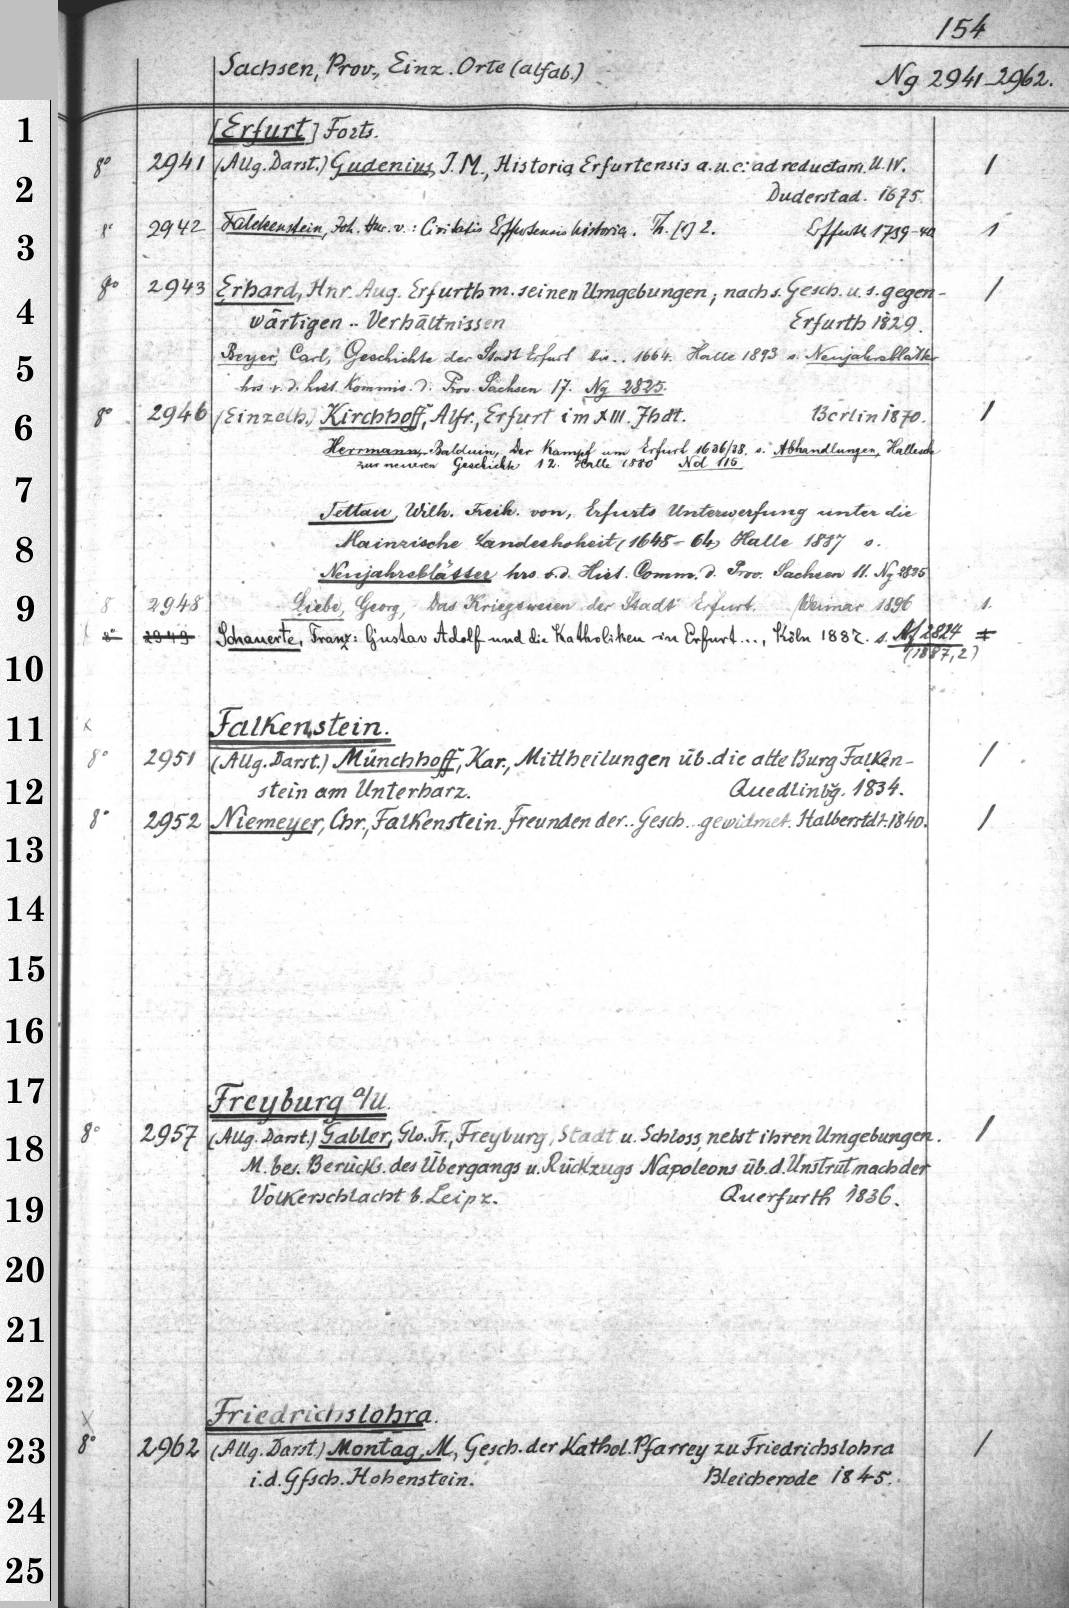 154
Sachsen, Prov., Einz. Orte (alfab.)
Ng 2941-2962.
1
[Erfurt] Forts.
8° 2941 (Allg. Darst.) Gudenius, J. M., Historia Erfurtensis a. u. c. ad reductam. U. IV. 1
2
Duderstad. 1675.
3
8° 2942 Falckenstein, Joh. Hnr. v.: Civitatis Erffurtensis historia. Th. [1] 2. Erffurth 1739-40 1
8° 2943 Erhard, Hnr. Aug. Erfurth m. seinen Umgebungen, nach s. Gesch. u. s. gegen- 1
4
wärtigen .. Verhältnissen Erfurth 1829.
5
Beyer, Carl, Geschichte der Stadt Erfurt bis .. 1664. Halle 1893 s. Neujahrsblätter
hrs. v. d. hist. Kommis. d. Prov. Sachsen 17. Ng 2825
6
8° 2946 (Einzelh.) Kirchhoff, Alfr., Erfurt im XIII. Jhdt. Berlin 1870. 1
Herrmann, Balduin, Der Kampf um Erfurt 1636/38. s. Abhandlungen, Hallesche
zur neueren Geschichte 12. Halle 1880 Nd 116
7
Tettau, Wilh. Freih. von, Erfurts Unterwerfung unter die
8
Mainzische Landeshoheit (1648-64) Halle 1887 s.
Neujahrsblätter hrs. v. d. Hist. Comm. d. Prov. Sachsen 11. Ng 2825
9
8 2948 Liebe, Georg, Das Kriegswesen der Stadt Erfurt. Weimar 1896 1.
8° 2949 Schauerte, Franz: Gustav Adolf und die Katholiken in Erfurt..., Köln 1887. s. Nf 2824 1
10
(1887,2)
11
Falkenstein.
8° 2951 (Allg. Darst.) Münchhoff, Kar., Mittheilungen üb. die alte Burg Falken- 1
12
stein am Unterharz. Quedlinbg. 1834.
8° 2952 Niemeyer, Chr., Falkenstein. Freunden der .. Gesch. gewidmet. Halberstdt. 1840. 1
13
14
15
16
17
Freyburg a/U.
18
8° 2957 (Allg. Darst.) Gabler, Glo. Fr., Freyburg, Stadt u. Schloss, nebst ihren Umgebungen. 1
M. bes. Berücks. des Übergangs u. Rückzugs Napoleons üb. d. Unstrut nach der
19
Völkerschlacht b. Leipz. Querfurth 1836.
20
21
22
Friedrichslohra.
23
8° 2962 (Allg. Darst.) Montag, M., Gesch. der Kathol. Pfarrey zu Friedrichslohra 1
i. d. Gfsch. Hohenstein. Bleicherode 1845.
24
25